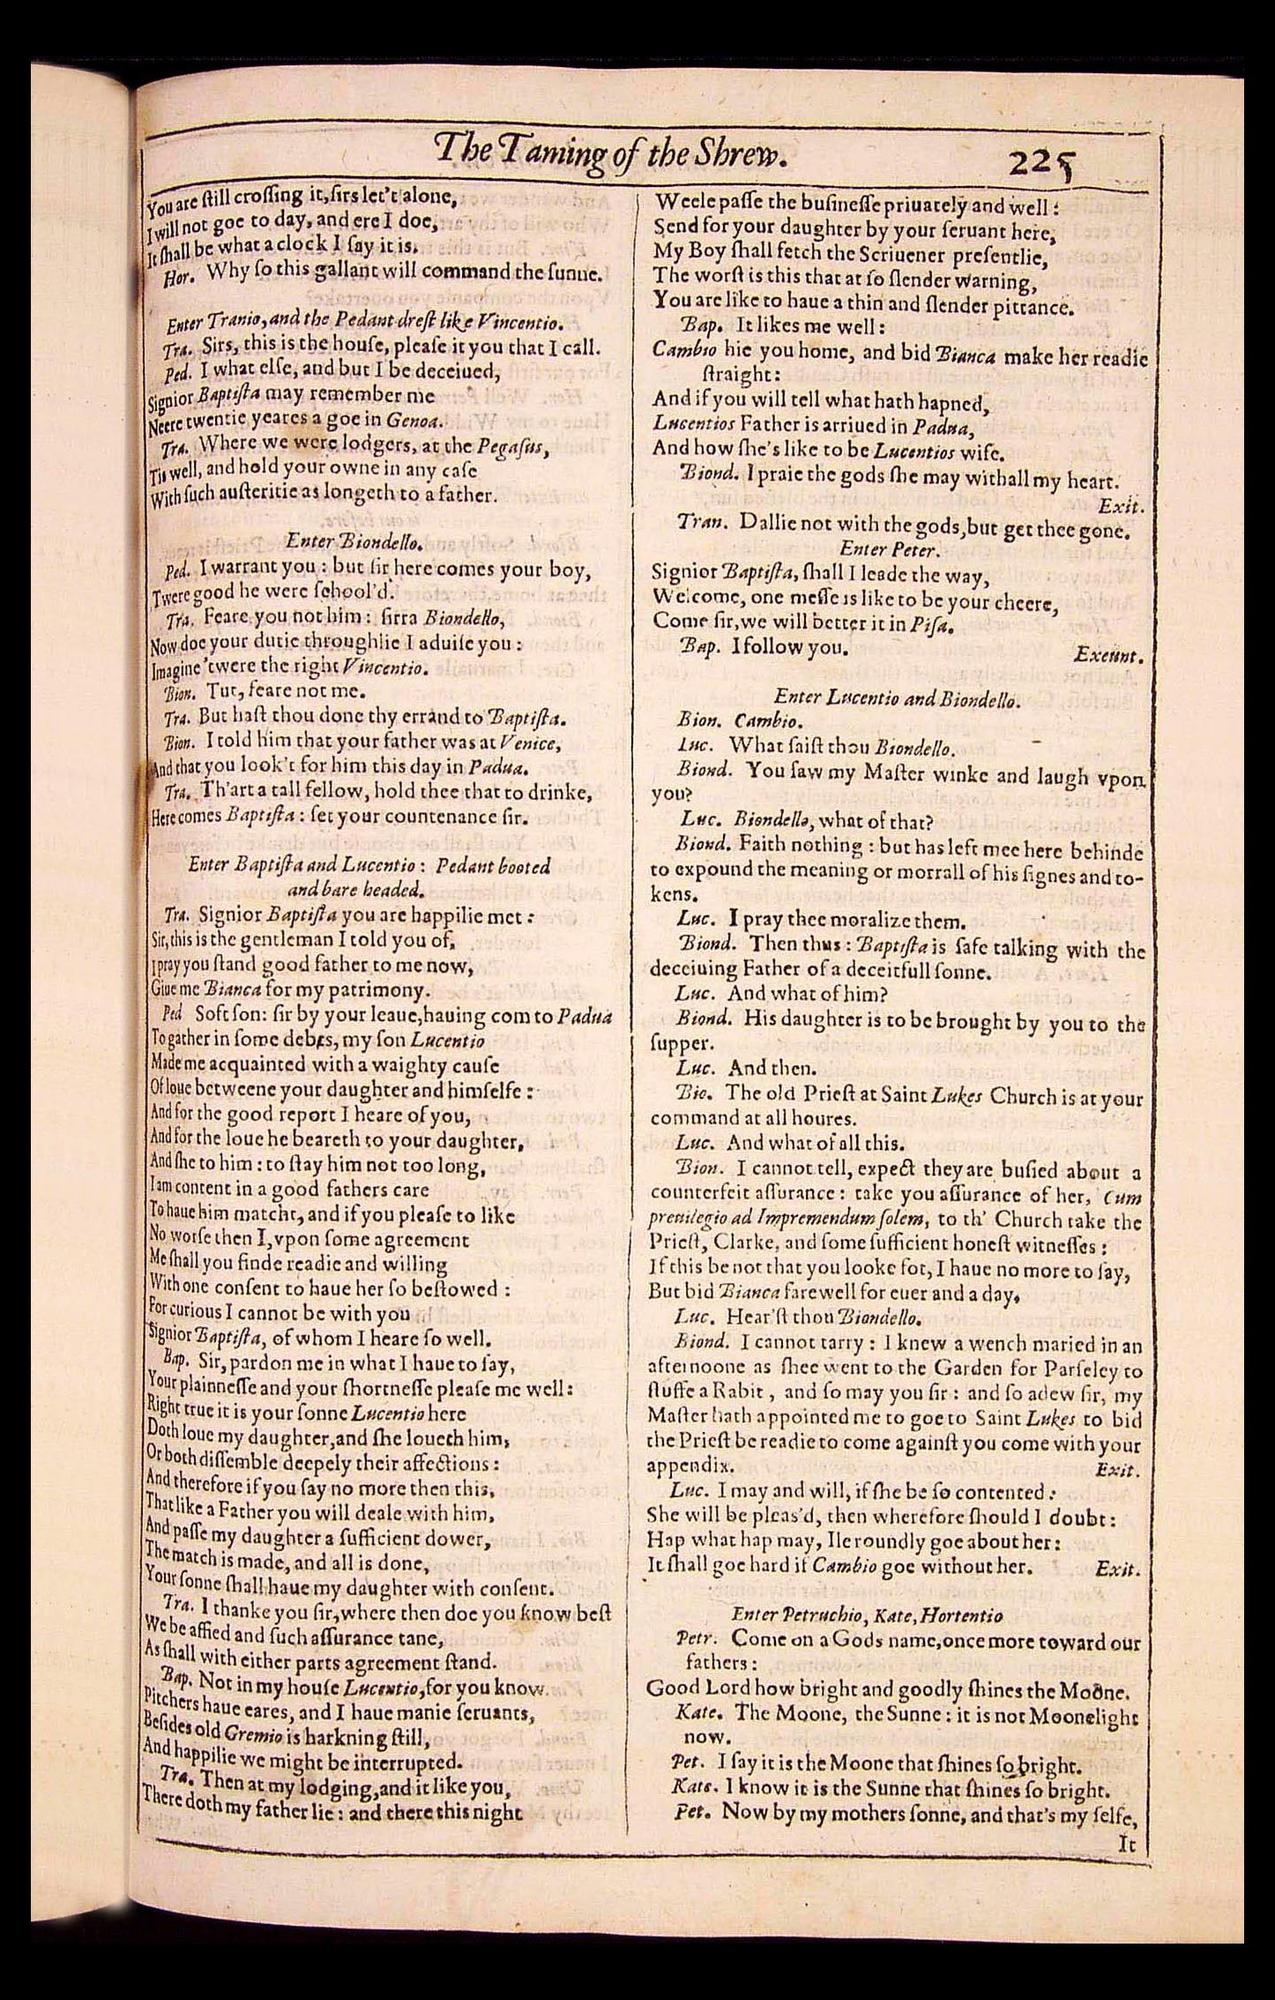 The Taming of the Shrew.
225
You are ſtill croſſing it,ſirs let't alone,
I will not goe to day, and ere I doe,
It ſhall be what a clock I ſay it is.
Hor. Why ſo this gallant will command the ſunne.
Enter Tranio, and the Pedant dreſt like Vincentio.
Tra. Sirs, this is the houſe, pleaſe it you that I call.
Ped. I what elſe, and but I be deceiued,
Signior Baptiſta may remember me
Neere twentie yeares a goe in Genoa.
Tra. Where we were lodgers, at the Pegaſus,
Tis well, and hold your owne in any caſe
With ſuch auſteritie as longeth to a father.
Enter Biondello.
Ped. I warrant you : but ſir here comes your boy,
Twere good he were ſchool'd.
Tra. Feare you not him : ſirra Biondello,
Now doe your dutie throughlie I aduiſe you :
Imagine 'twere the right Vincentio.
Bion. Tut, feare not me.
Tra. But haſt thou done thy errand to Baptiſta.
Bion. I told him that your father was at Venice,
And that you look't for him this day in Padua.
Tra. Th'art a tall fellow, hold thee that to drinke,
Here comes Baptiſta : ſet your countenance ſir.
Enter Baptiſta and Lucentio : Pedant booted
and bare headed.
Tra. Signior Baptiſta you are happilie met :
Sir, this is the gentleman I told you of,
I pray you ſtand good father to me now,
Giue me Bianca for my patrimony.
Ped Soft ſon: ſir by your leaue,hauing com to Padua
To gather in ſome debts, my ſon Lucentio
Made me acquainted with a waighty cauſe
Of loue betweene your daughter and himſelfe :
And for the good report I heare of you,
And for the loue he beareth to your daughter,
And ſhe to him : to ſtay him not too long,
I am content in a good fathers care
To haue him matcht, and if you pleaſe to like
No worſe then I, vpon ſome agreement
Me ſhall you finde readie and willing
With one conſent to haue her ſo beſtowed :
For curious I cannot be with you
Signior Baptiſta, of whom I heare ſo well.
Bap. Sir, pardon me in what I haue to ſay,
Your plainneſſe and your ſhortneſſe pleaſe me well :
Right true it is your ſonne Lucentio here
Doth loue my daughter,and ſhe loueth him,
Or both diſſemble deepely their affections :
And therefore if you ſay no more then this,
That like a Father you will deale with him,
And paſſe my daughter a ſufficient dower,
The match is made, and all is done,
Your ſonne ſhall haue my daughter with conſent.
Tra. I thanke you ſir,where then doe you know beſt
We be affied and ſuch aſſurance tane,
As ſhall with either parts agreement ſtand.
Bap. Not in my houſe Lucentio,for you know
Pitchers haue eares, and I haue manie ſeruants,
Beſides old Gremio is harkning ſtill,
And happilie we might be interrupted.
Tra. Then at my lodging,and it like you,
There doth my father lie : and there this night
Weele paſſe the buſineſſe priuately and well :
Send for your daughter by your ſeruant here,
My Boy ſhall fetch the Scriuener preſentlie,
The worſt is this that at ſo ſlender warning,
You are like to haue a thin and ſlender pittance.
Bap. It likes me well :
Cambio hie you home, and bid Bianca make her readie
ſtraight :
And if you will tell what hath hapned,
Lucentios Father is arriued in Padua,
And how ſhe's like to be Lucentios wife.
Biond. I praie the gods ſhe may withall my heart.
Exit.
Tran. Dallie not with the gods,but get thee gone.
Enter Peter.
Signior Baptiſta, ſhall I leade the way,
Welcome, one meſſe is like to be your cheere,
Come ſir,we will better it in Piſa.
Bap. I follow you.
Exeunt.
Enter Lucentio and Biondello.
Bion. Cambio.
Luc. What ſaiſt thou Biondello.
Biond. You ſaw my Maſter winke and laugh vpon
you?
Luc. Biondello, what of that?
Biond. Faith nothing : but has left mee here behinde
to expound the meaning or morrall of his ſignes and to-
kens.
Luc. I pray thee moralize them.
Biond. Then thus : Baptiſta is ſafe talking with the
deceiuing Father of a deceitfull ſonne.
Luc. And what of him?
Biond. His daughter is to be brought by you to the
ſupper.
Luc. And then.
Bio. The old Prieſt at Saint Lukes Church is at your
command at all houres.
Luc. And what of all this.
Bion. I cannot tell, expect they are buſied about a
counterfeit aſſurance : take you aſſurance of her, Cum
preuilegio ad Impremendum ſolem, to th' Church take the
Prieſt, Clarke, and ſome ſufficient honeſt witneſſes :
If this be not that you looke for, I haue no more to ſay,
But bid Bianca farewell for euer and a day.
Luc. Hear'ſt thou Biondello.
Biond. I cannot tarry : I knew a wench maried in an
afternoone as ſhee went to the Garden for Parſeley to
ſtuffe a Rabit , and ſo may you ſir : and ſo adew ſir, my
Maſter hath appointed me to goe to Saint Lukes to bid
the Prieſt be readie to come againſt you come with your
appendix.
Exit.
Luc. I may and will, if ſhe be ſo contented :
She will be pleas'd, then wherefore ſhould I doubt :
Hap what hap may, Ile roundly goe about her :
It ſhall goe hard if Cambio goe without her. Exit.
Enter Petruchio, Kate, Hortentio
Petr. Come on a Gods name,once more toward our
fathers :
Good Lord how bright and goodly ſhines the Moone.
Kate. The Moone, the Sunne : it is not Moonelight
now.
Pet. I ſay it is the Moone that ſhines ſo bright.
Kate. I know it is the Sunne that ſhines ſo bright.
Pet. Now by my mothers ſonne, and that's my ſelfe,
It